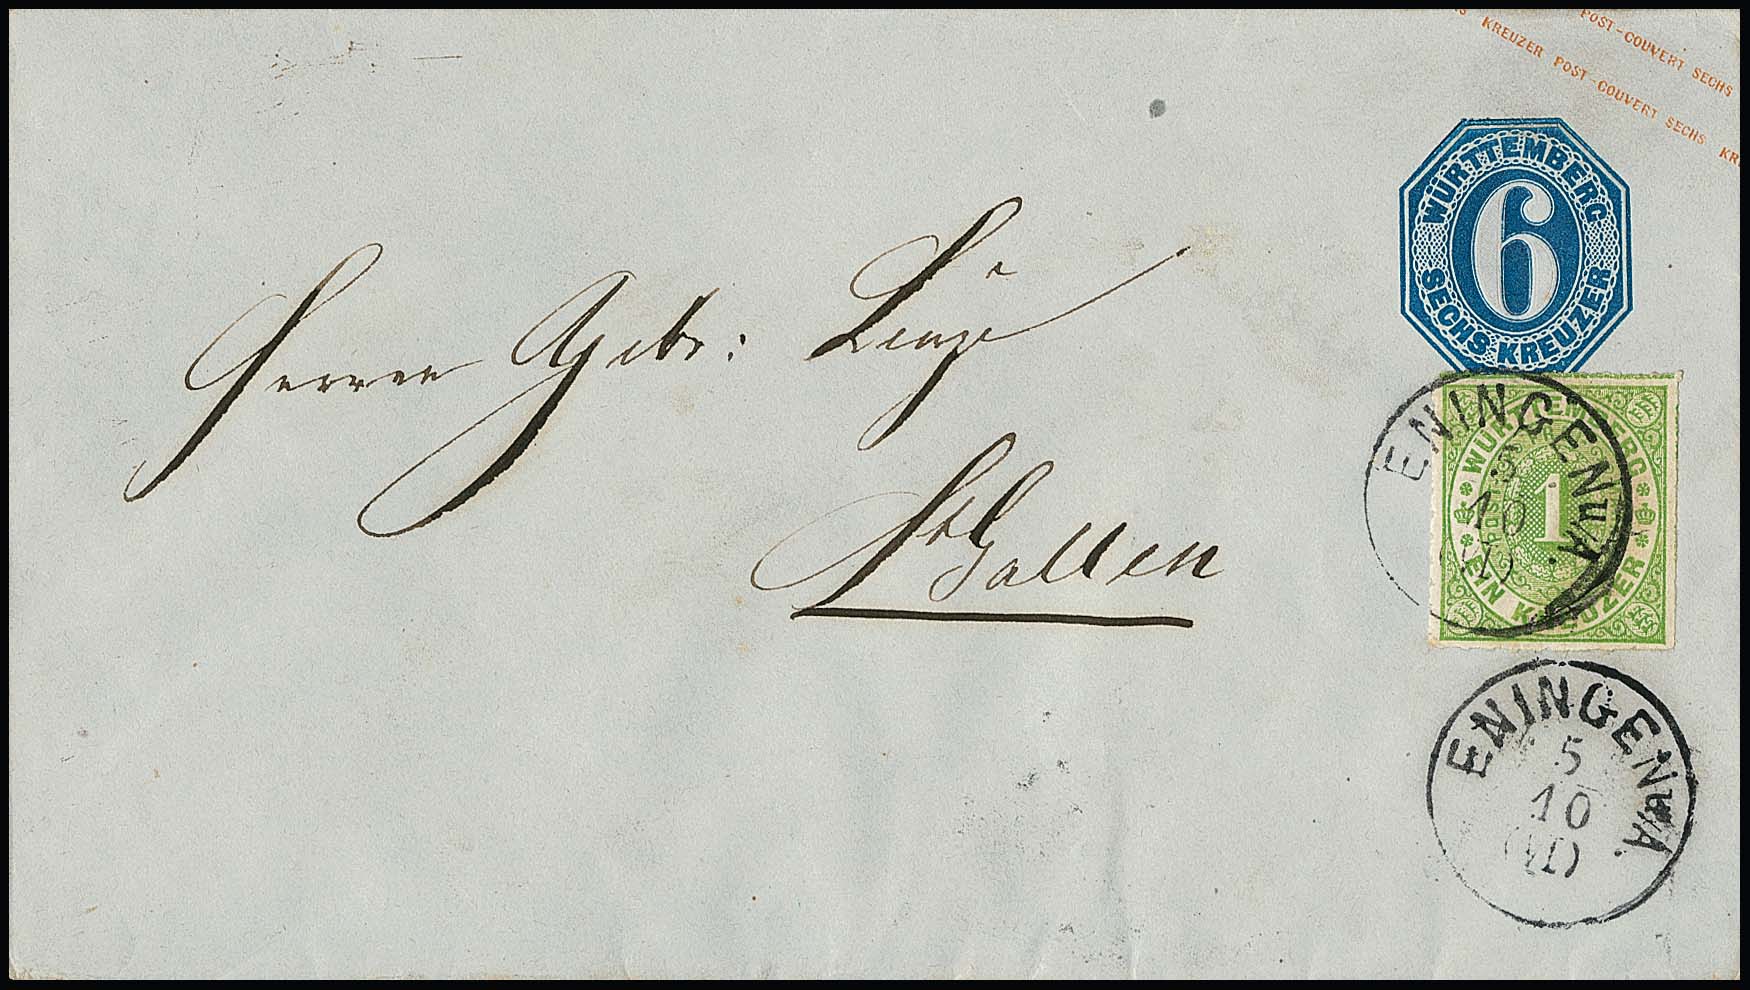 POST-COUVERT SECHS
KREUZER POST-COUVERT SECHS KR
WÜRTTEMBERG
6
SECHS KREUZER
Herren Gebr:
St Gallen
WÜRTTEMBERG
1
EIN KREUZER
ENINGEN u/A.
5
10
ENINGEN u/A.
5
10